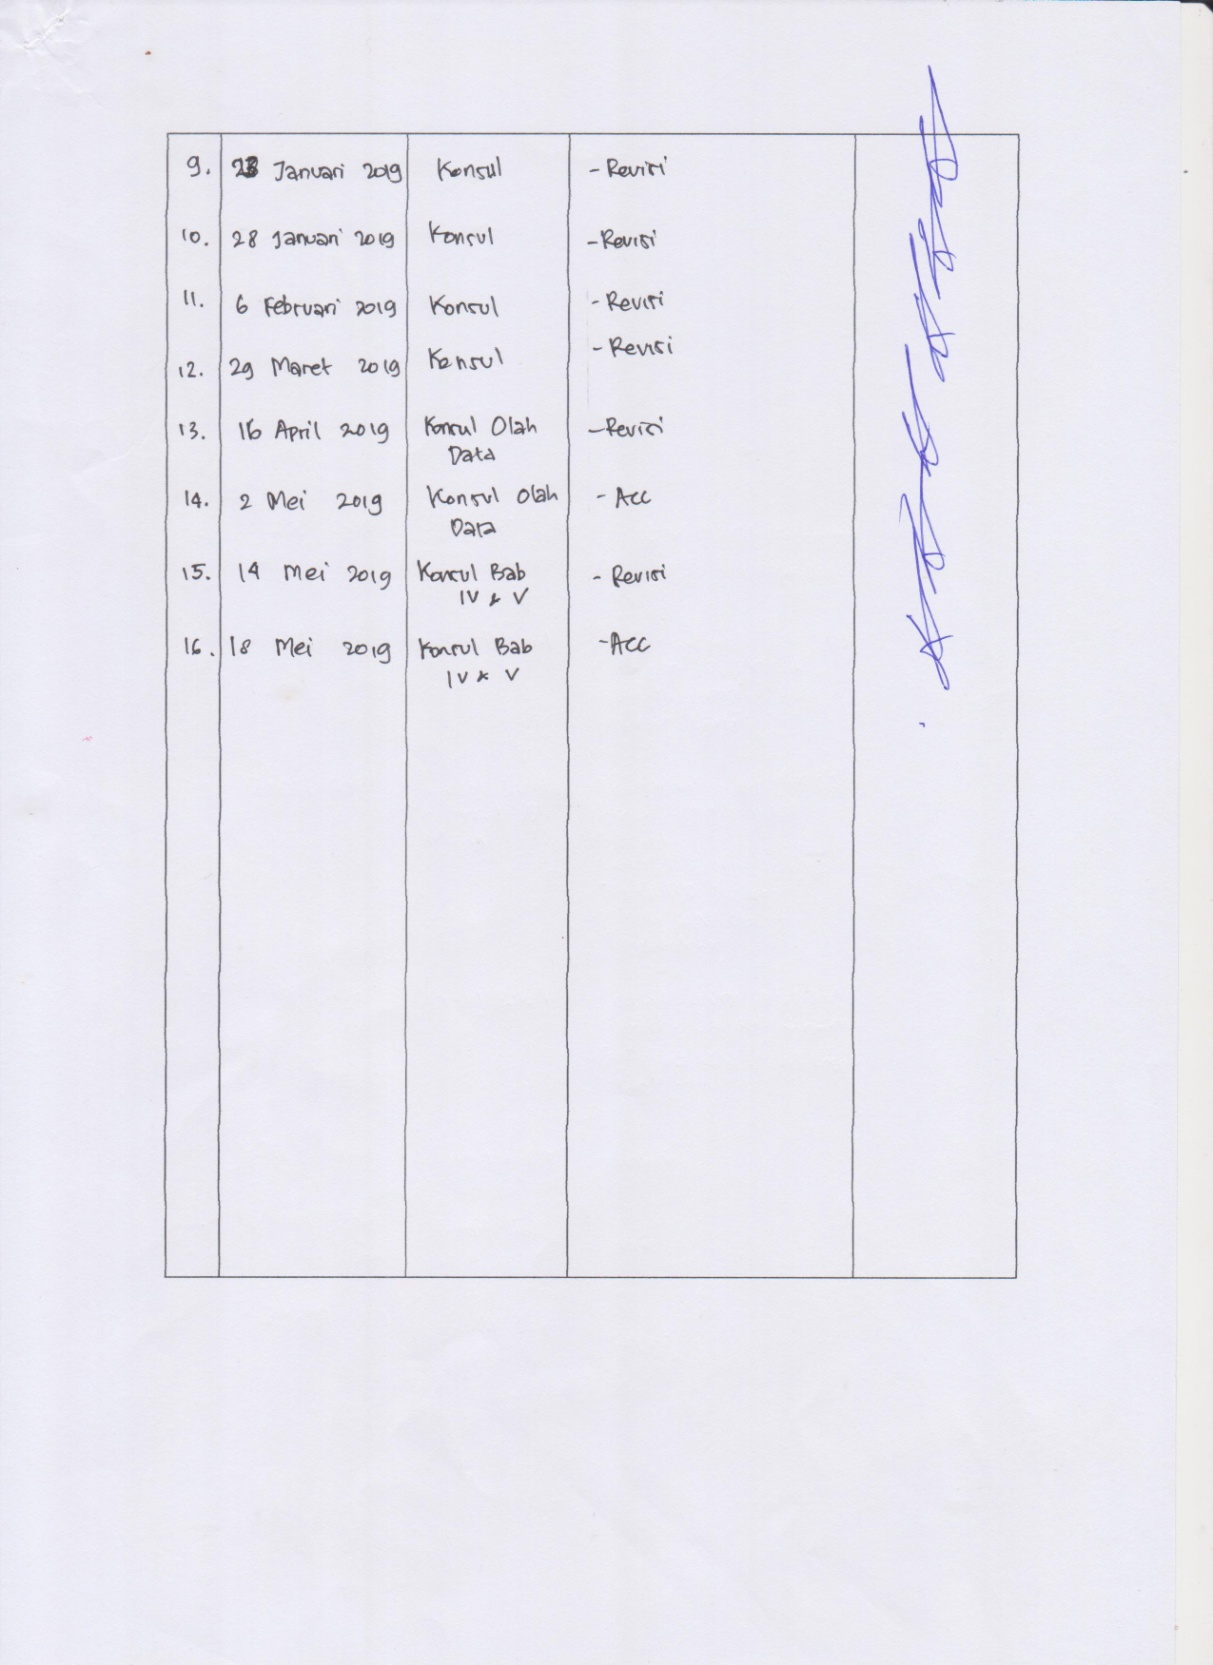 9. 23 Januari 2019 Konsul - Revisi
10. 28 Januari 2019 Konsul - Revisi
11. 6 Februari 2019 Konsul - Revisi
12. 29 Maret 2019 Konsul - Revisi
13. 16 April 2019 Konsul Olah - Revisi
Data
14. 2 Mei 2019 Konsul Olah - Acc
Data
15. 14 Mei 2019 Konsul Bab - Revisi
IV & V
16. 18 Mei 2019 Konsul Bab - Acc
IV & V